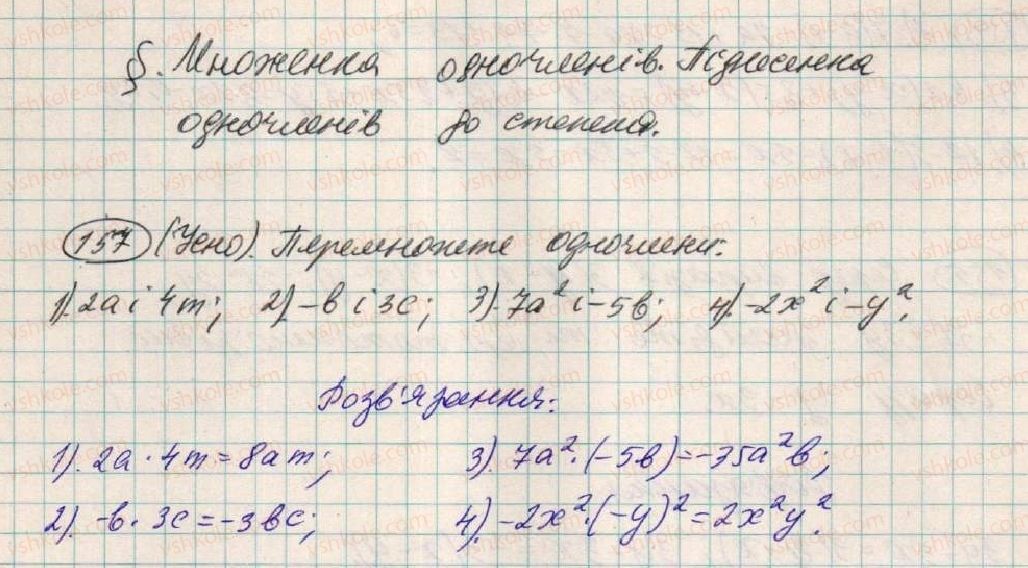 §. Множення одночленів. Піднесення
одночленів до степеня.
157 (Усно). Перемножте одночлени:
1). 2a і 4m; 2). -b і 3c; 3). 7a² і -5b; 4). -2x² і -y².
Розв'язання:
1). 2a · 4m = 8am; 3). 7a² · (-5b) = -35a²b;
2). -b · 3c = -3bc; 4). -2x² · (-y)² = 2x²y².